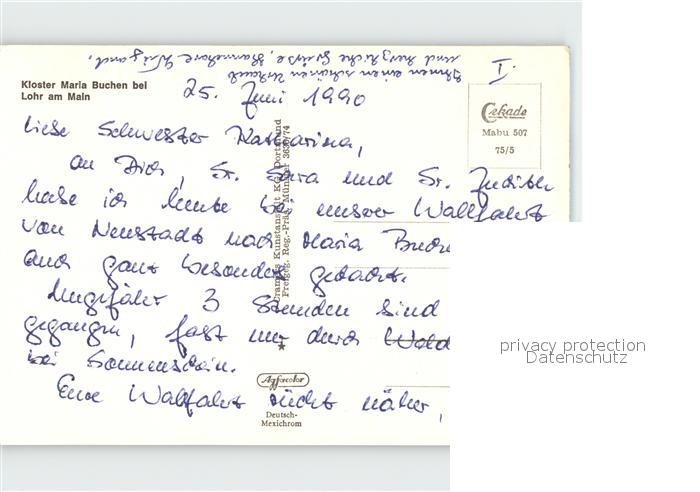 Ihnen einen schönen Urlaub
und herzliche Grüße, Hannelore
I.
Kloster Maria Buchen bei
Lohr am Main
25. Juni 1990
Cekade
Mabu 507
75/5
Liebe Schwester Katharina,
an Dich, Sr. Sara und Sr. Judith
habe ich heute bei unserer Wallfahrt
von Neustadt nach Maria Buchen
auch ganz besonders gedacht.
Ungefähr 3 Stunden sind
gegangen, fast nur durch Wald
bei Sonnenschein.
Eure Wallfahrt rückt näher,
Cramers Kunstanstalt KG, Dortmund
Freigeg. Reg.-Präs. Münster 3630/74
Agfacolor
Deutsch-
Mexichrom
privacy protection
Datenschutz